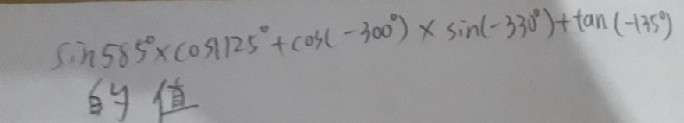 sin585°×cos1125°+cos(-300°)×sin(-330°)+tan(-135°)
的值